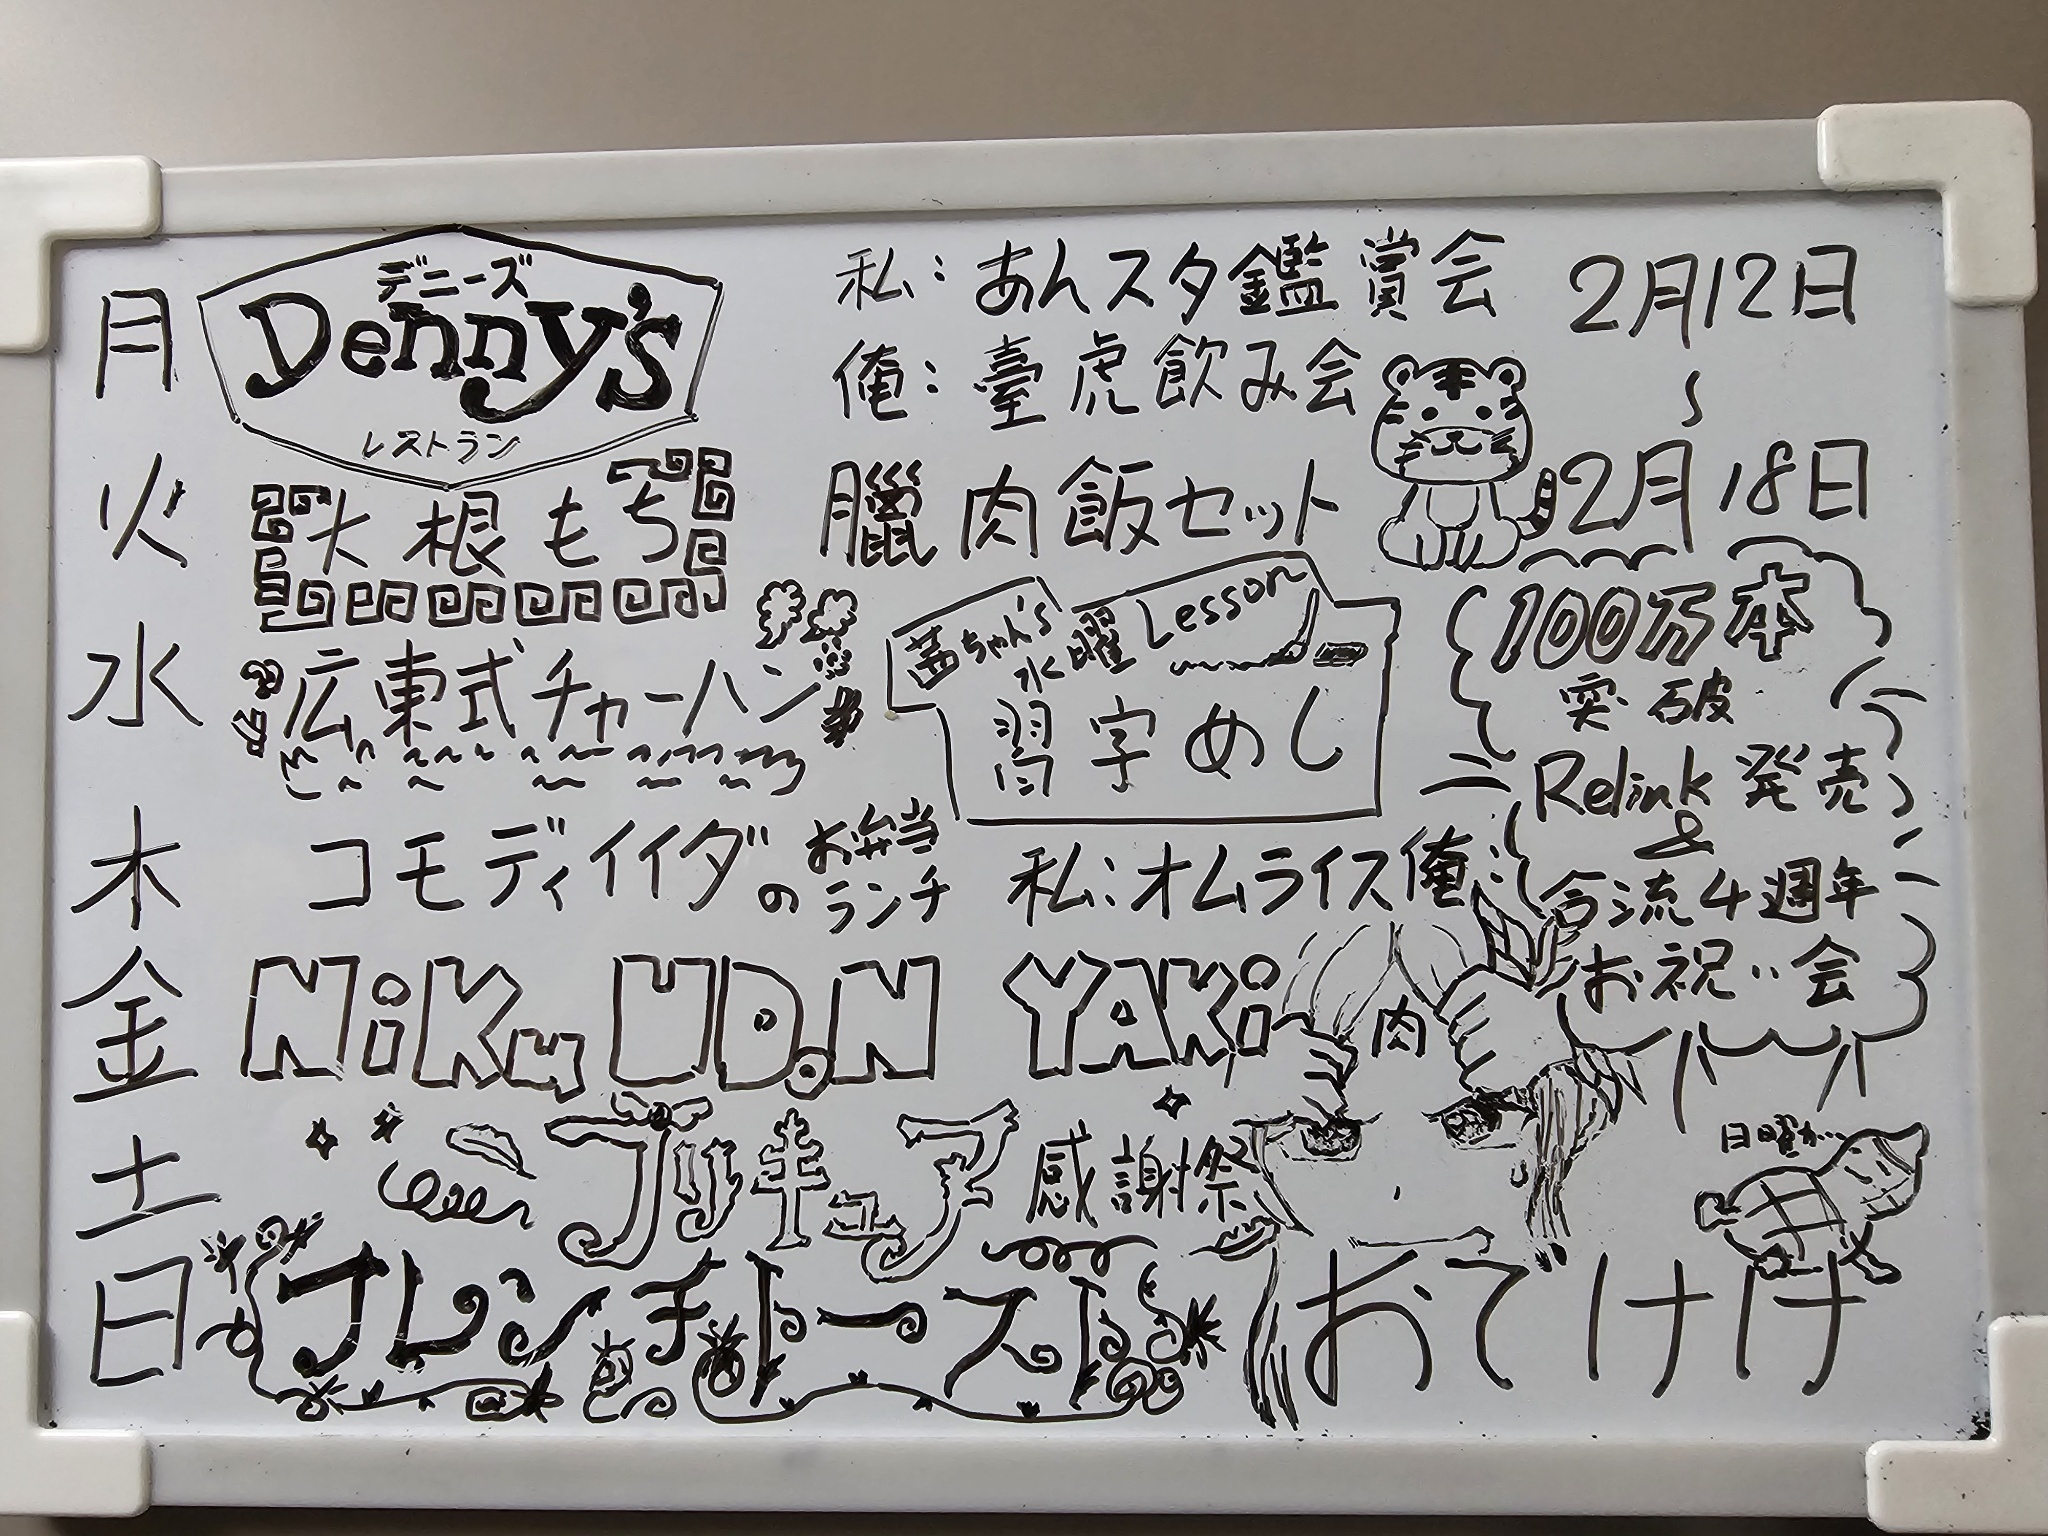 月 デニーズ Denny's レストラン
私：あんスタ鑑賞会
俺：臺虎飲み会
2月12日
〜
2月18日
火 大根もち 臘肉飯セット
水 広東式チャーハン
茜ちゃん's 水曜 Lesson
習字めし
木 コモディイイダのお弁当ランチ
私：オムライス 俺：
100万本
突破
Relink 発売
&
合流4週年
お祝い会
金 NiKu UDoN YAKi
肉
土 プリキュア感謝祭
日曜が…
日 フレンチトースト おでけけ